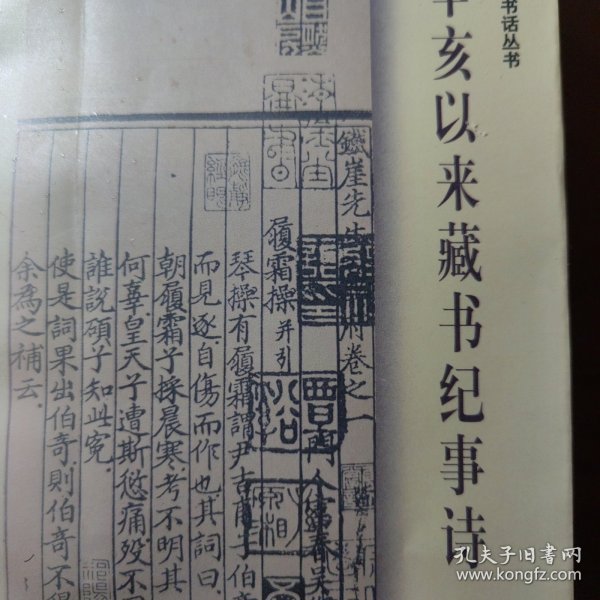 书话丛书
辛亥以来藏书纪事诗
鐵崖先生
府卷之一
履霜操 并引
琴操有履霜謂尹吉甫子伯奇
而見逐自傷而作也其詞曰
朝履霜兮採晨寒考不明其
何辜皇天兮遭斯愆痛殁不同
誰說碩兮知此冤
使是詞果出伯奇則伯奇不得
余為之補云
孔夫子旧书网
www.kongfz.com